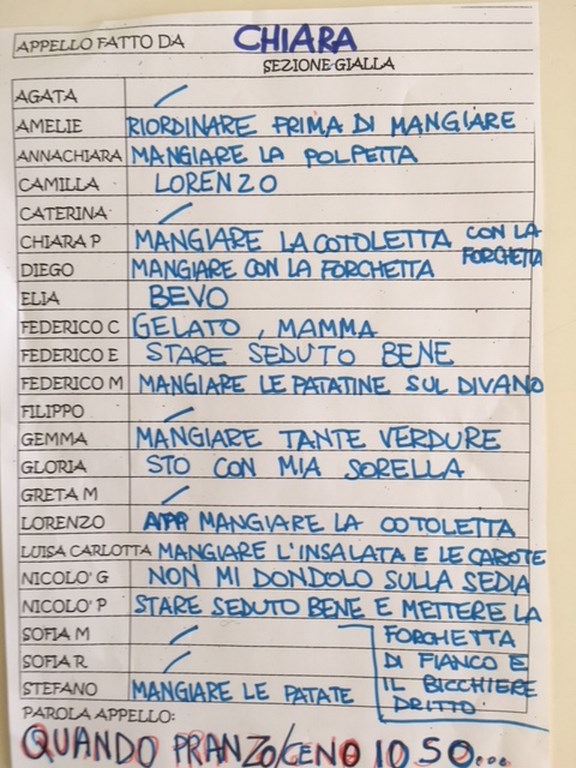 APPELLO FATTO DA CHIARA
SEZIONE GIALLA
AGATA /
AMELIE RIORDINARE PRIMA DI MANGIARE
ANNACHIARA MANGIARE LA POLPETTA
CAMILLA LORENZO
CATERINA /
CHIARA P MANGIARE LA COTOLETTA CON LA FORCHETTA
DIEGO MANGIARE CON LA FORCHETTA
ELIA BEVO
FEDERICO C GELATO, MAMMA
FEDERICO E STARE SEDUTO BENE
FEDERICO M MANGIARE LE PATATINE SUL DIVANO
FILIPPO /
GEMMA MANGIARE TANTE VERDURE
GLORIA STO CON MIA SORELLA
GRETA M /
LORENZO MANGIARE LA COTOLETTA
LUISA CARLOTTA MANGIARE L'INSALATA E LE CAROTE
NICOLO' G NON MI DONDOLO SULLA SEDIA
NICOLO' P STARE SEDUTO BENE E METTERE LA
FORCHETTA
DI FIANCO E
IL BICCHIERE
DRITTO
SOFIA M /
SOFIA R /
STEFANO MANGIARE LE PATATE
PAROLA APPELLO:
QUANDO PRANZO/CENO IO SO...